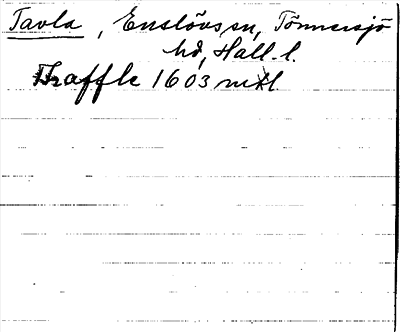 Tavla, Enslövs sn, Tönnersjö
hd, Hall. l.
Traffle 1603 mtl